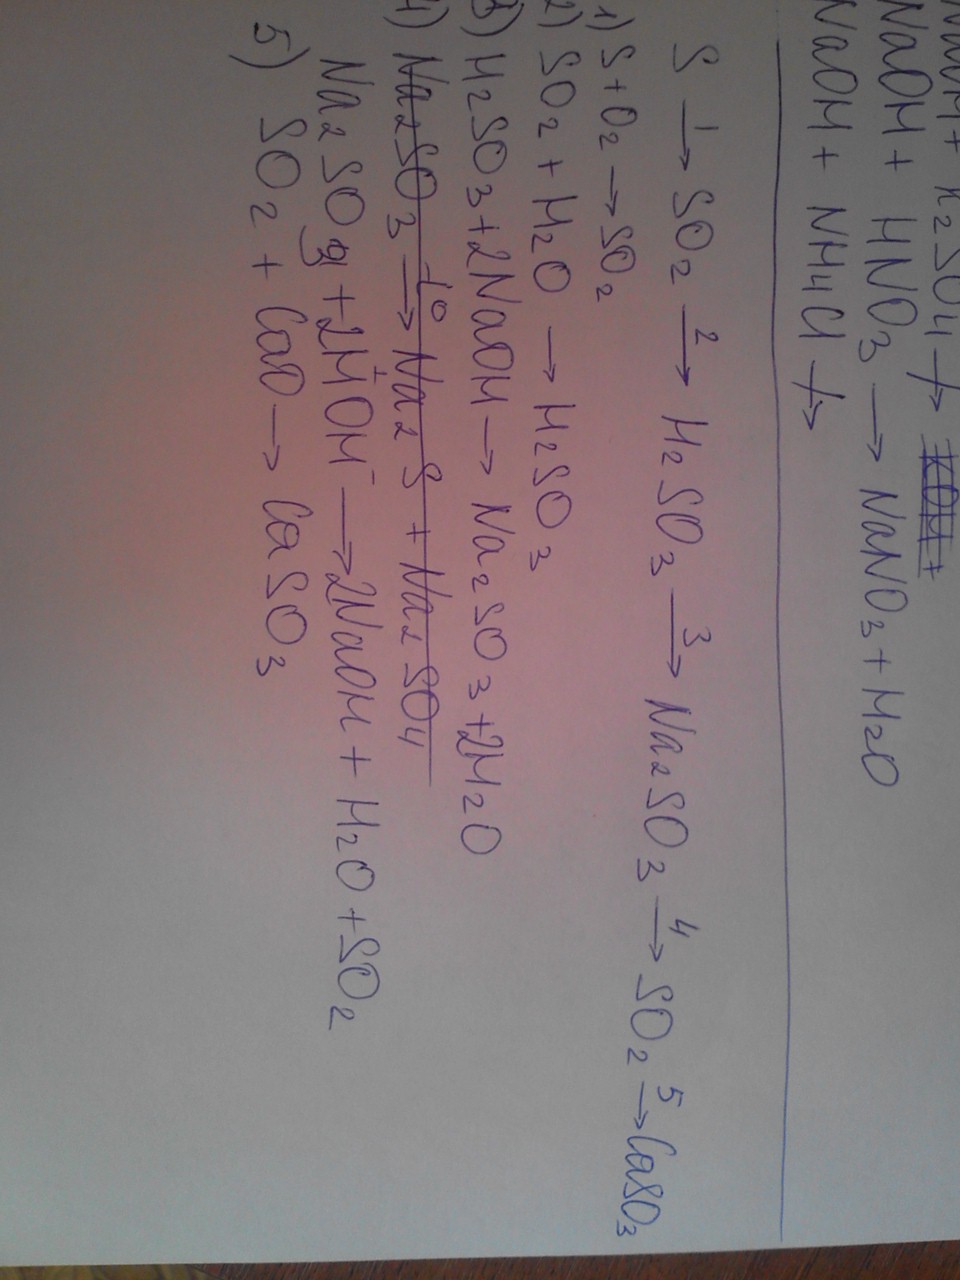 NaOH + K₂SO₄ ↛ ~~KOH +~~
NaOH + HNO₃ → NaNO₃ + H₂O
NaOH + NH₄Cl ↛
S →¹ SO₂ →² H₂SO₃ →³ Na₂SO₃ →⁴ SO₂ →⁵ CaSO₃
1) S + O₂ → SO₂
2) SO₂ + H₂O → H₂SO₃
3) H₂SO₃ + 2NaOH → Na₂SO₃ + 2H₂O
4) ~~Na₂SO₃ →ᵗ° Na₂S + Na₂SO₄~~
Na₂SO₃ + 2H⁺OH⁻ → 2NaOH + H₂O + SO₂
5) SO₂ + CaO → CaSO₃